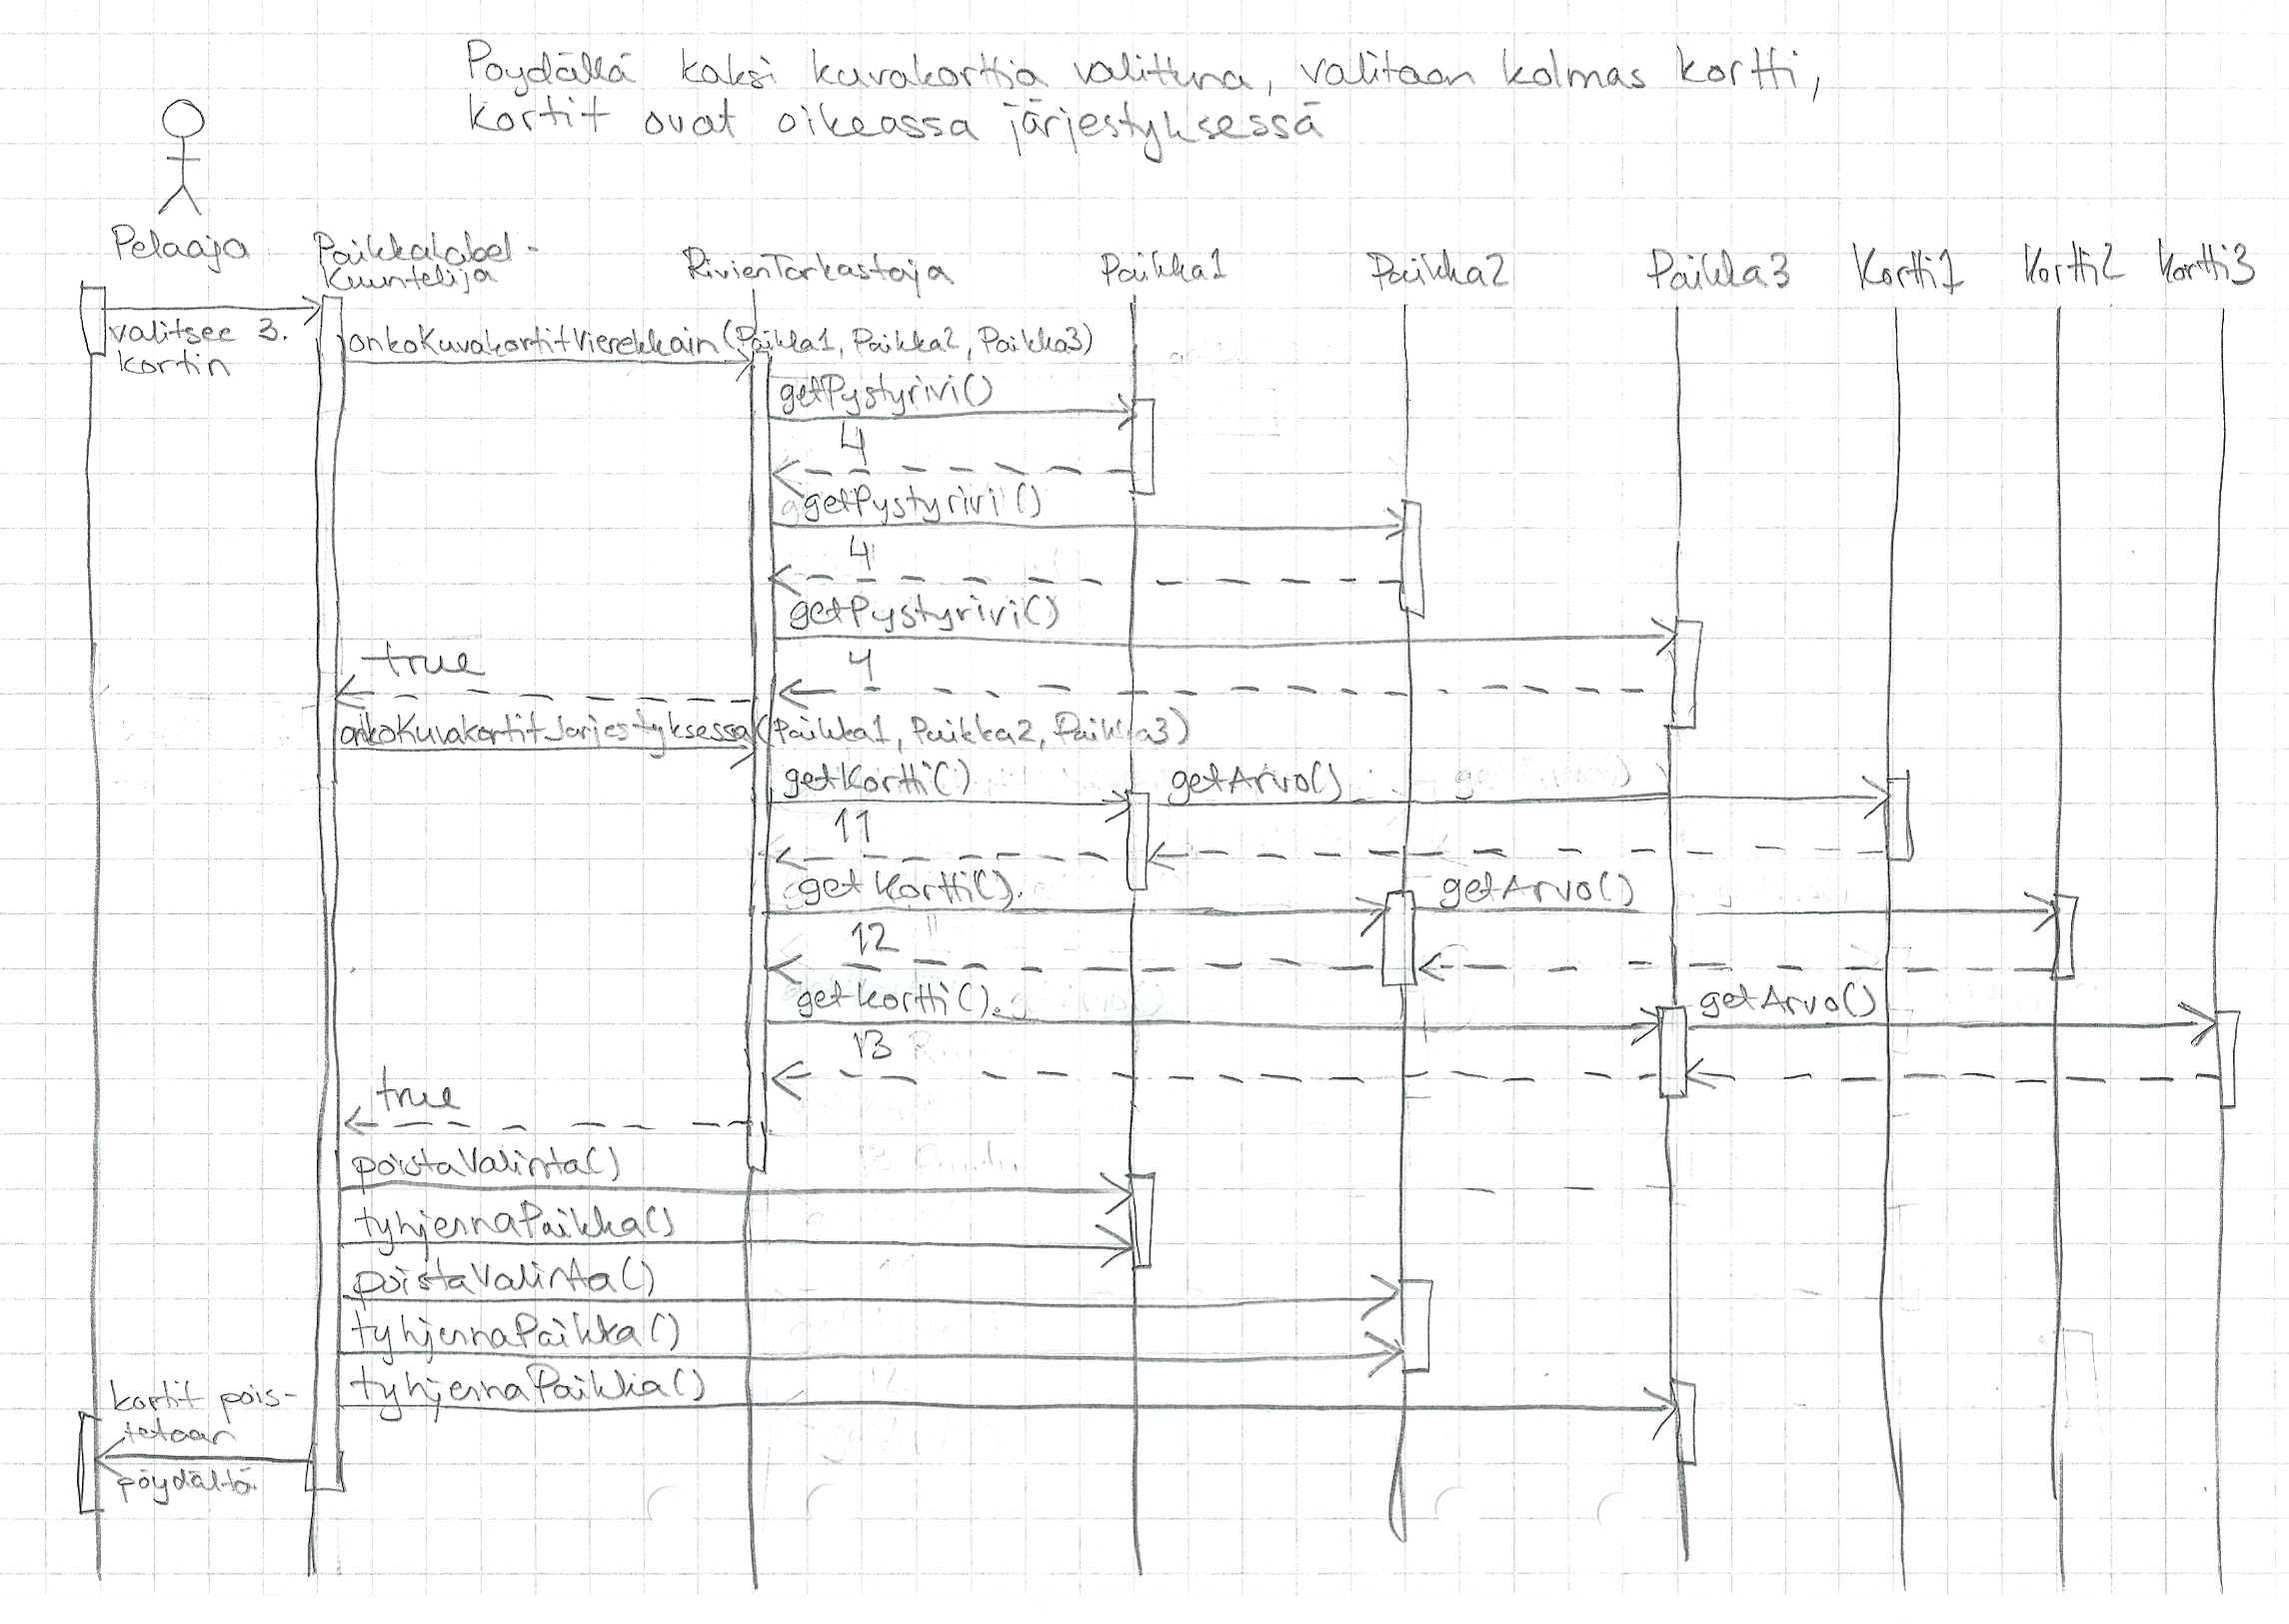 Pöydällä kaksi kuvakorttia valittuna, valitaan kolmas kortti,
kortit ovat oikeassa järjestyksessä
Pelaaja
PaikkaLabel-
Kuuntelija
RivienTarkastaja
Paikka1
Paikka2
Paikka3
Kortti1
Kortti2
Kortti3
valitsee 3.
kortin
onkoKuvakortitVierekkain(Paikka1, Paikka2, Paikka3)
getPystyrivi()
4
getPystyrivi()
4
getPystyrivi()
true
4
onkoKuvakortitJarjestyksessa(Paikka1, Paikka2, Paikka3)
getKortti()
getArvo()
11
getKortti().
getArvo()
12
getKortti().
getArvo()
13
true
poistaValinta()
tyhjennaPaikka()
poistaValinta()
tyhjennaPaikka()
tyhjennaPaikka()
kortit pois-
tetaan
pöydältä